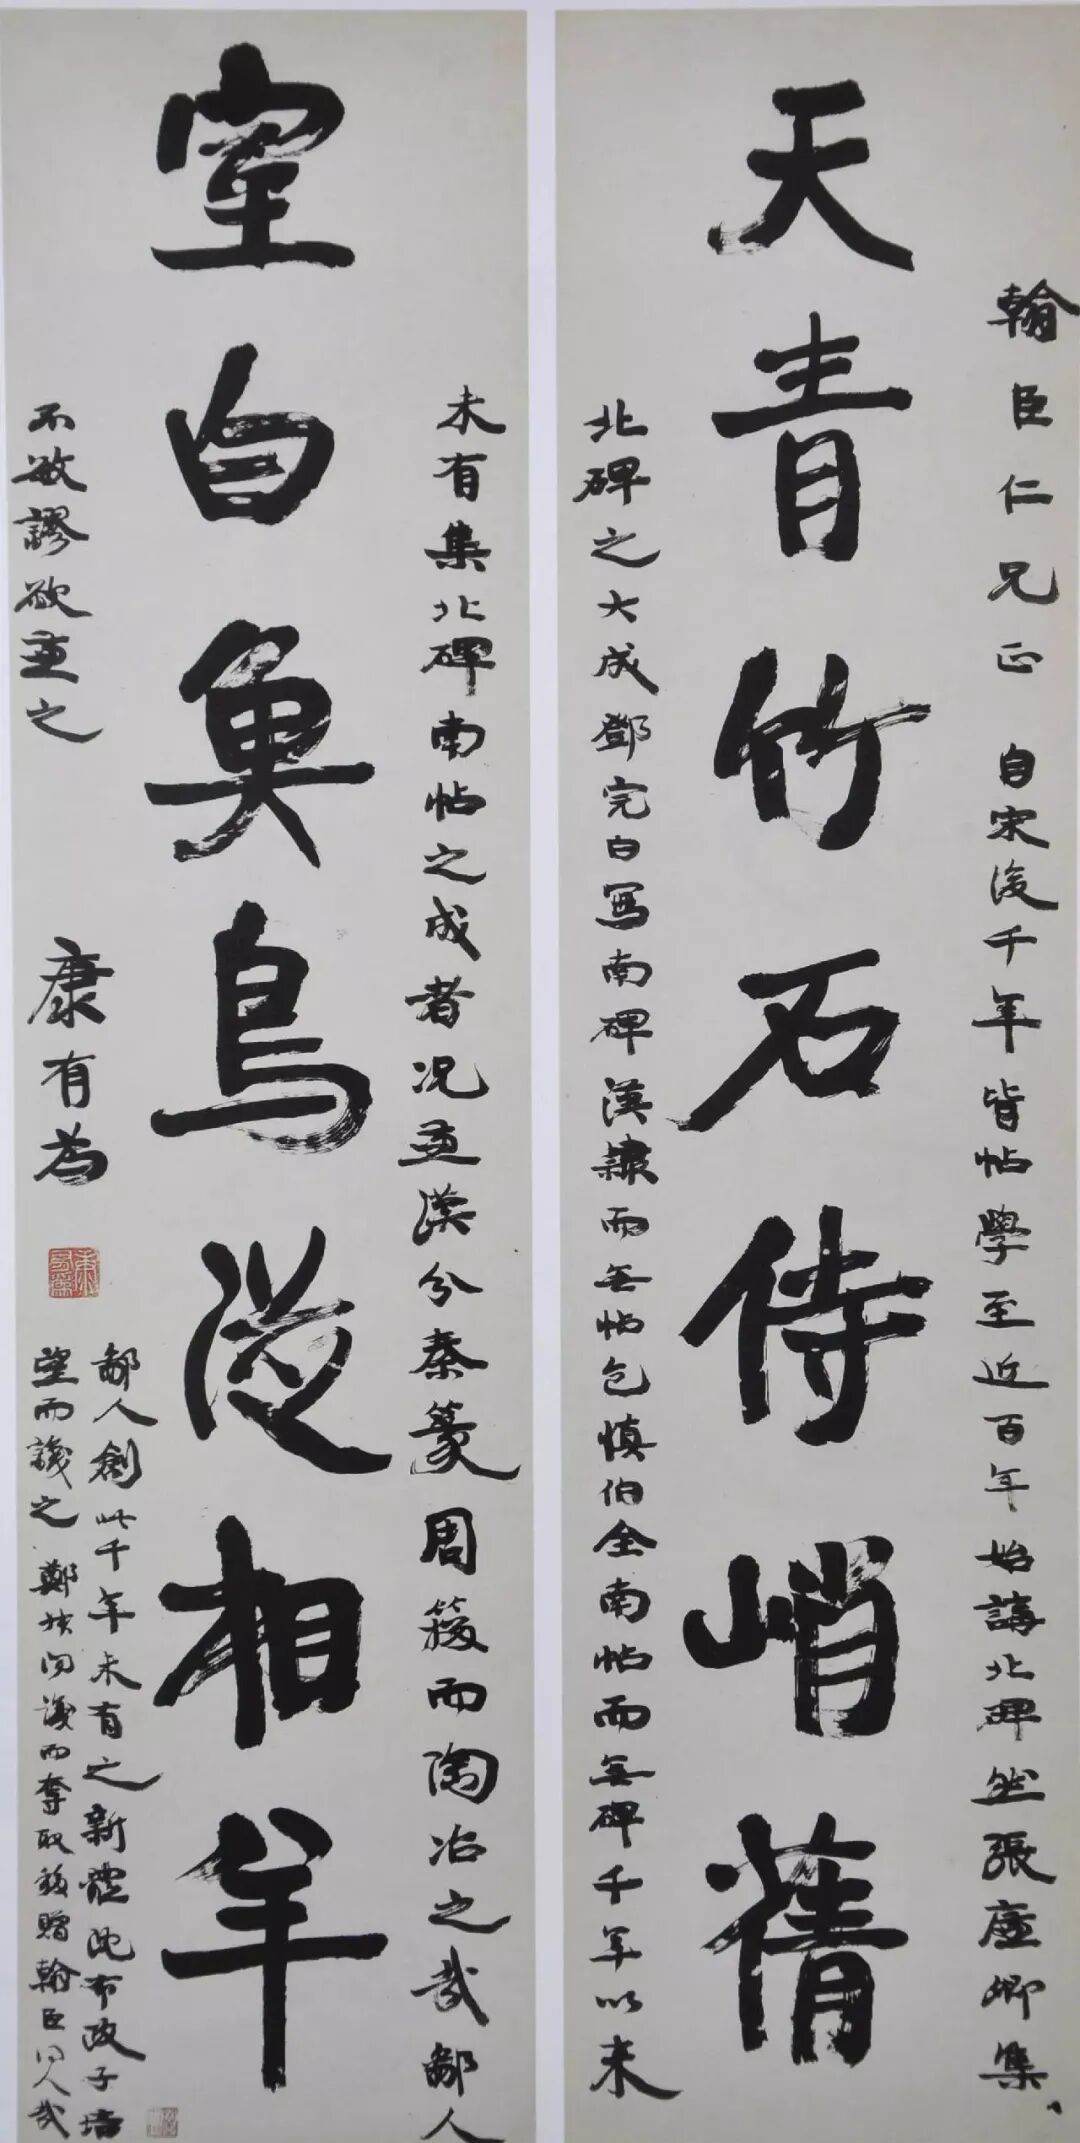 翰臣仁兄正 自宋後千年皆帖學至近百年始講北碑然張廉卿集
天青竹石侍峭蒨
北碑之大成鄧完白寫南碑漢隸而無帖包慎伯全南帖而無碑千年以來
未有集北碑南帖之成者况兼漢分秦篆周籀而陶冶之哉鄙人
室白魚鳥從相羊
不敏謬欲兼之
康有為
鄙人創此千年未有之新體沈布政子培
望而識之鄭叔問識而奪取移贈翰臣同人哉